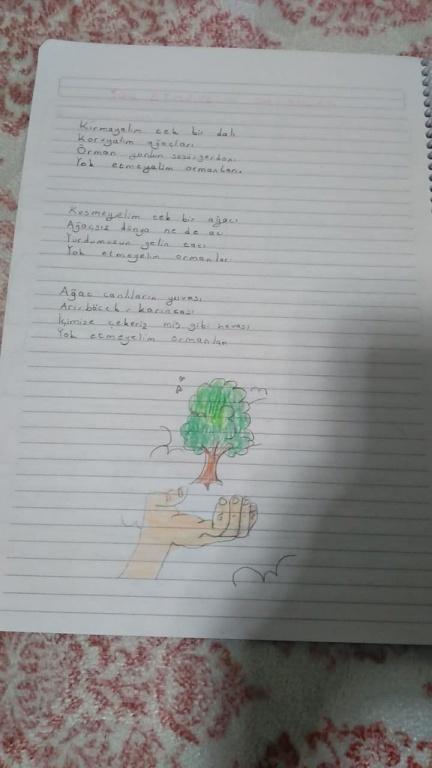 Kırmayalım tek bir dalı
Koruyalım ağaçları
Orman yurdun
Yok etmeyelim ormanları
Kesmeyelim tek bir ağacı
Ağaçsız dünya ne de acı
Yurdumuzun gelin tacı
Yok etmeyelim ormanları
Ağaç canlıların yuvası
Arı, böcek, karıncası
İçimize çekeriz mis gibi havası
Yok etmeyelim ormanları